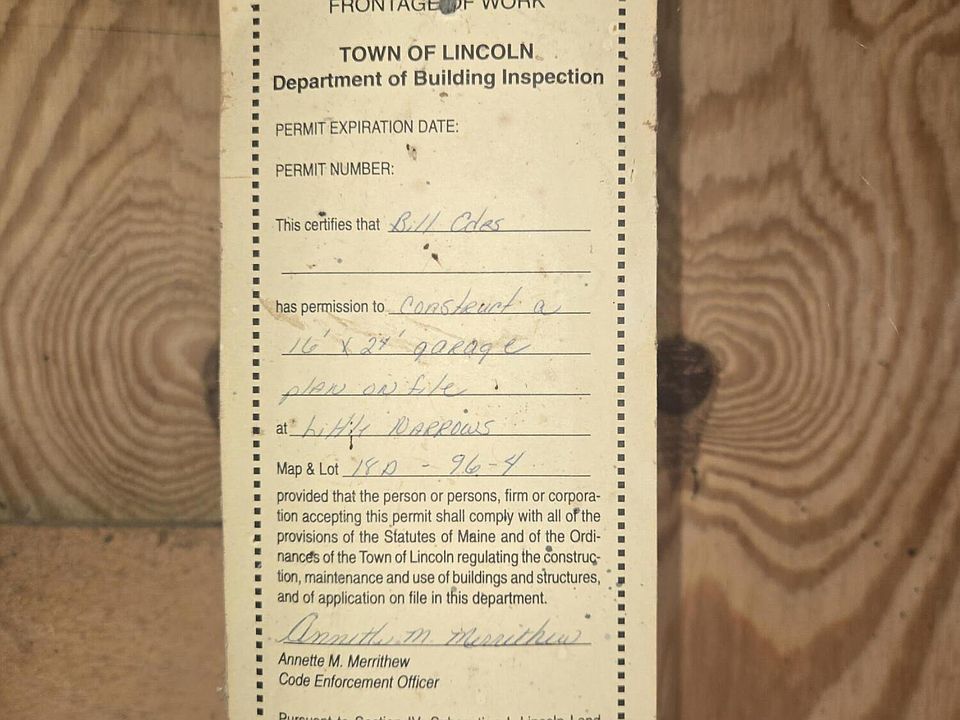 FRONTAGE OF WORK
TOWN OF LINCOLN
Department of Building Inspection
PERMIT EXPIRATION DATE:
PERMIT NUMBER:
This certifies that Bill Edes
has permission to Construct a
16' x 24' garage
plan on file
at Little Narrows
Map & Lot 18D - 96-4
provided that the person or persons, firm or corpora-
tion accepting this permit shall comply with all of the
provisions of the Statutes of Maine and of the Ordi-
nances of the Town of Lincoln regulating the construc-
tion, maintenance and use of buildings and structures,
and of application on file in this department.
Annette M. Merrithew
Annette M. Merrithew
Code Enforcement Officer
Pursuant to Section IV, Subsection I, Lincoln Land